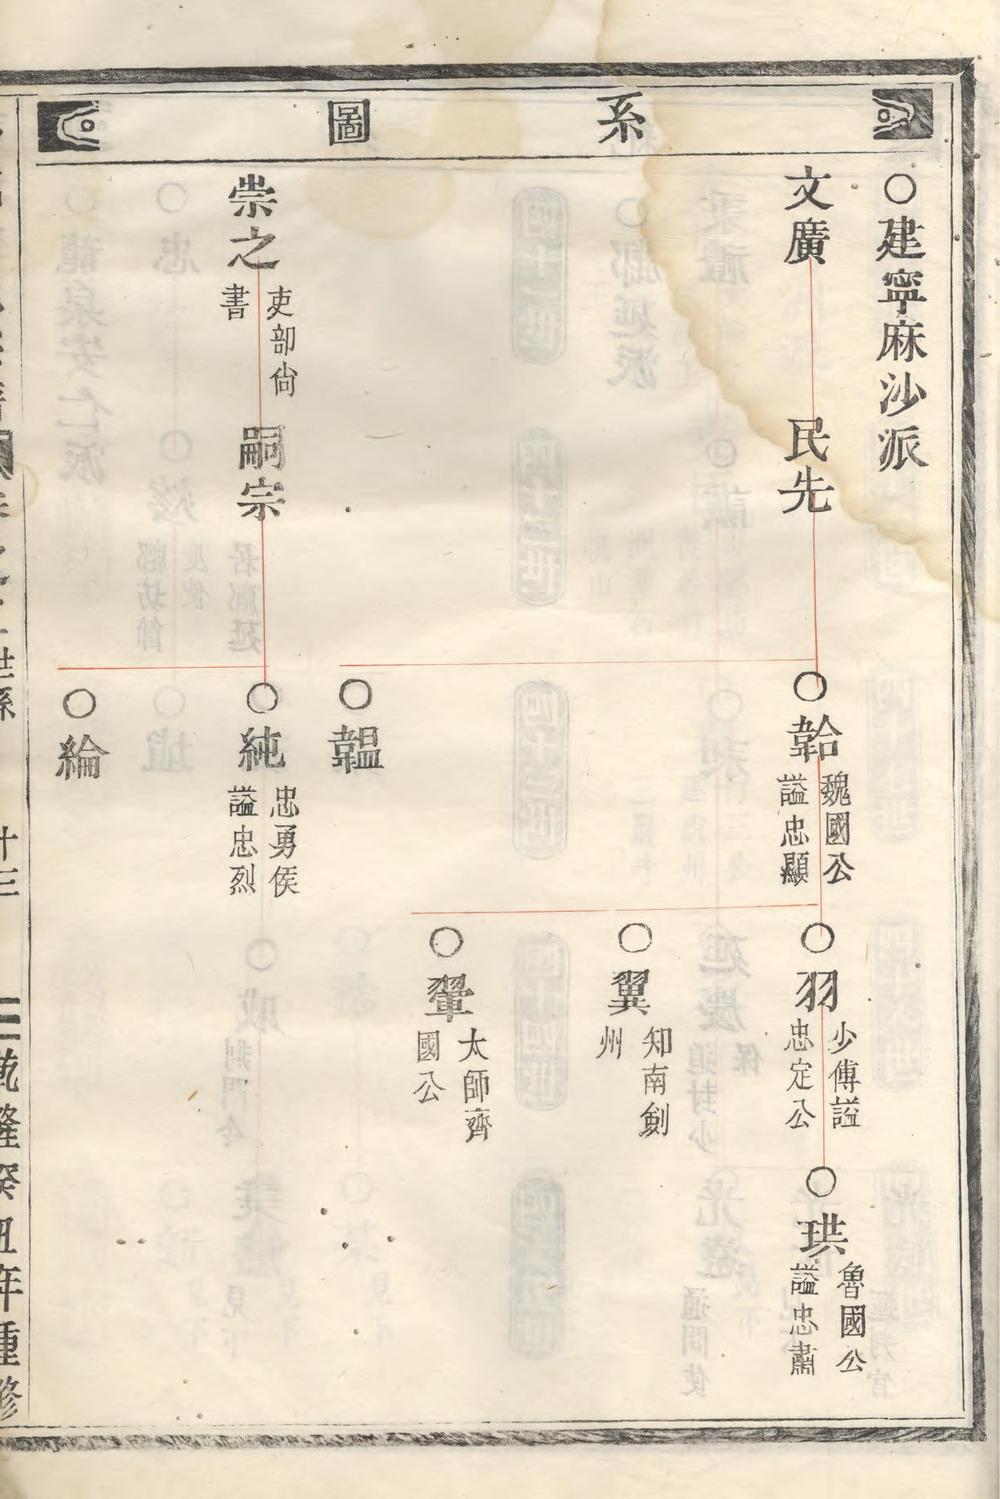 系圖
○建寧麻沙派
文廣
民先
○韐
魏國公
謚忠顯
○羽
少傅謚
忠定公
○珙
魯國公
謚忠肅
○翼
知南劍
州
○翬
太師齊
國公
○韞
崇之
吏部尙
書
嗣宗
○純
忠勇侯
謚忠烈
○綸
世系
十三
乾隆癸丑年重修